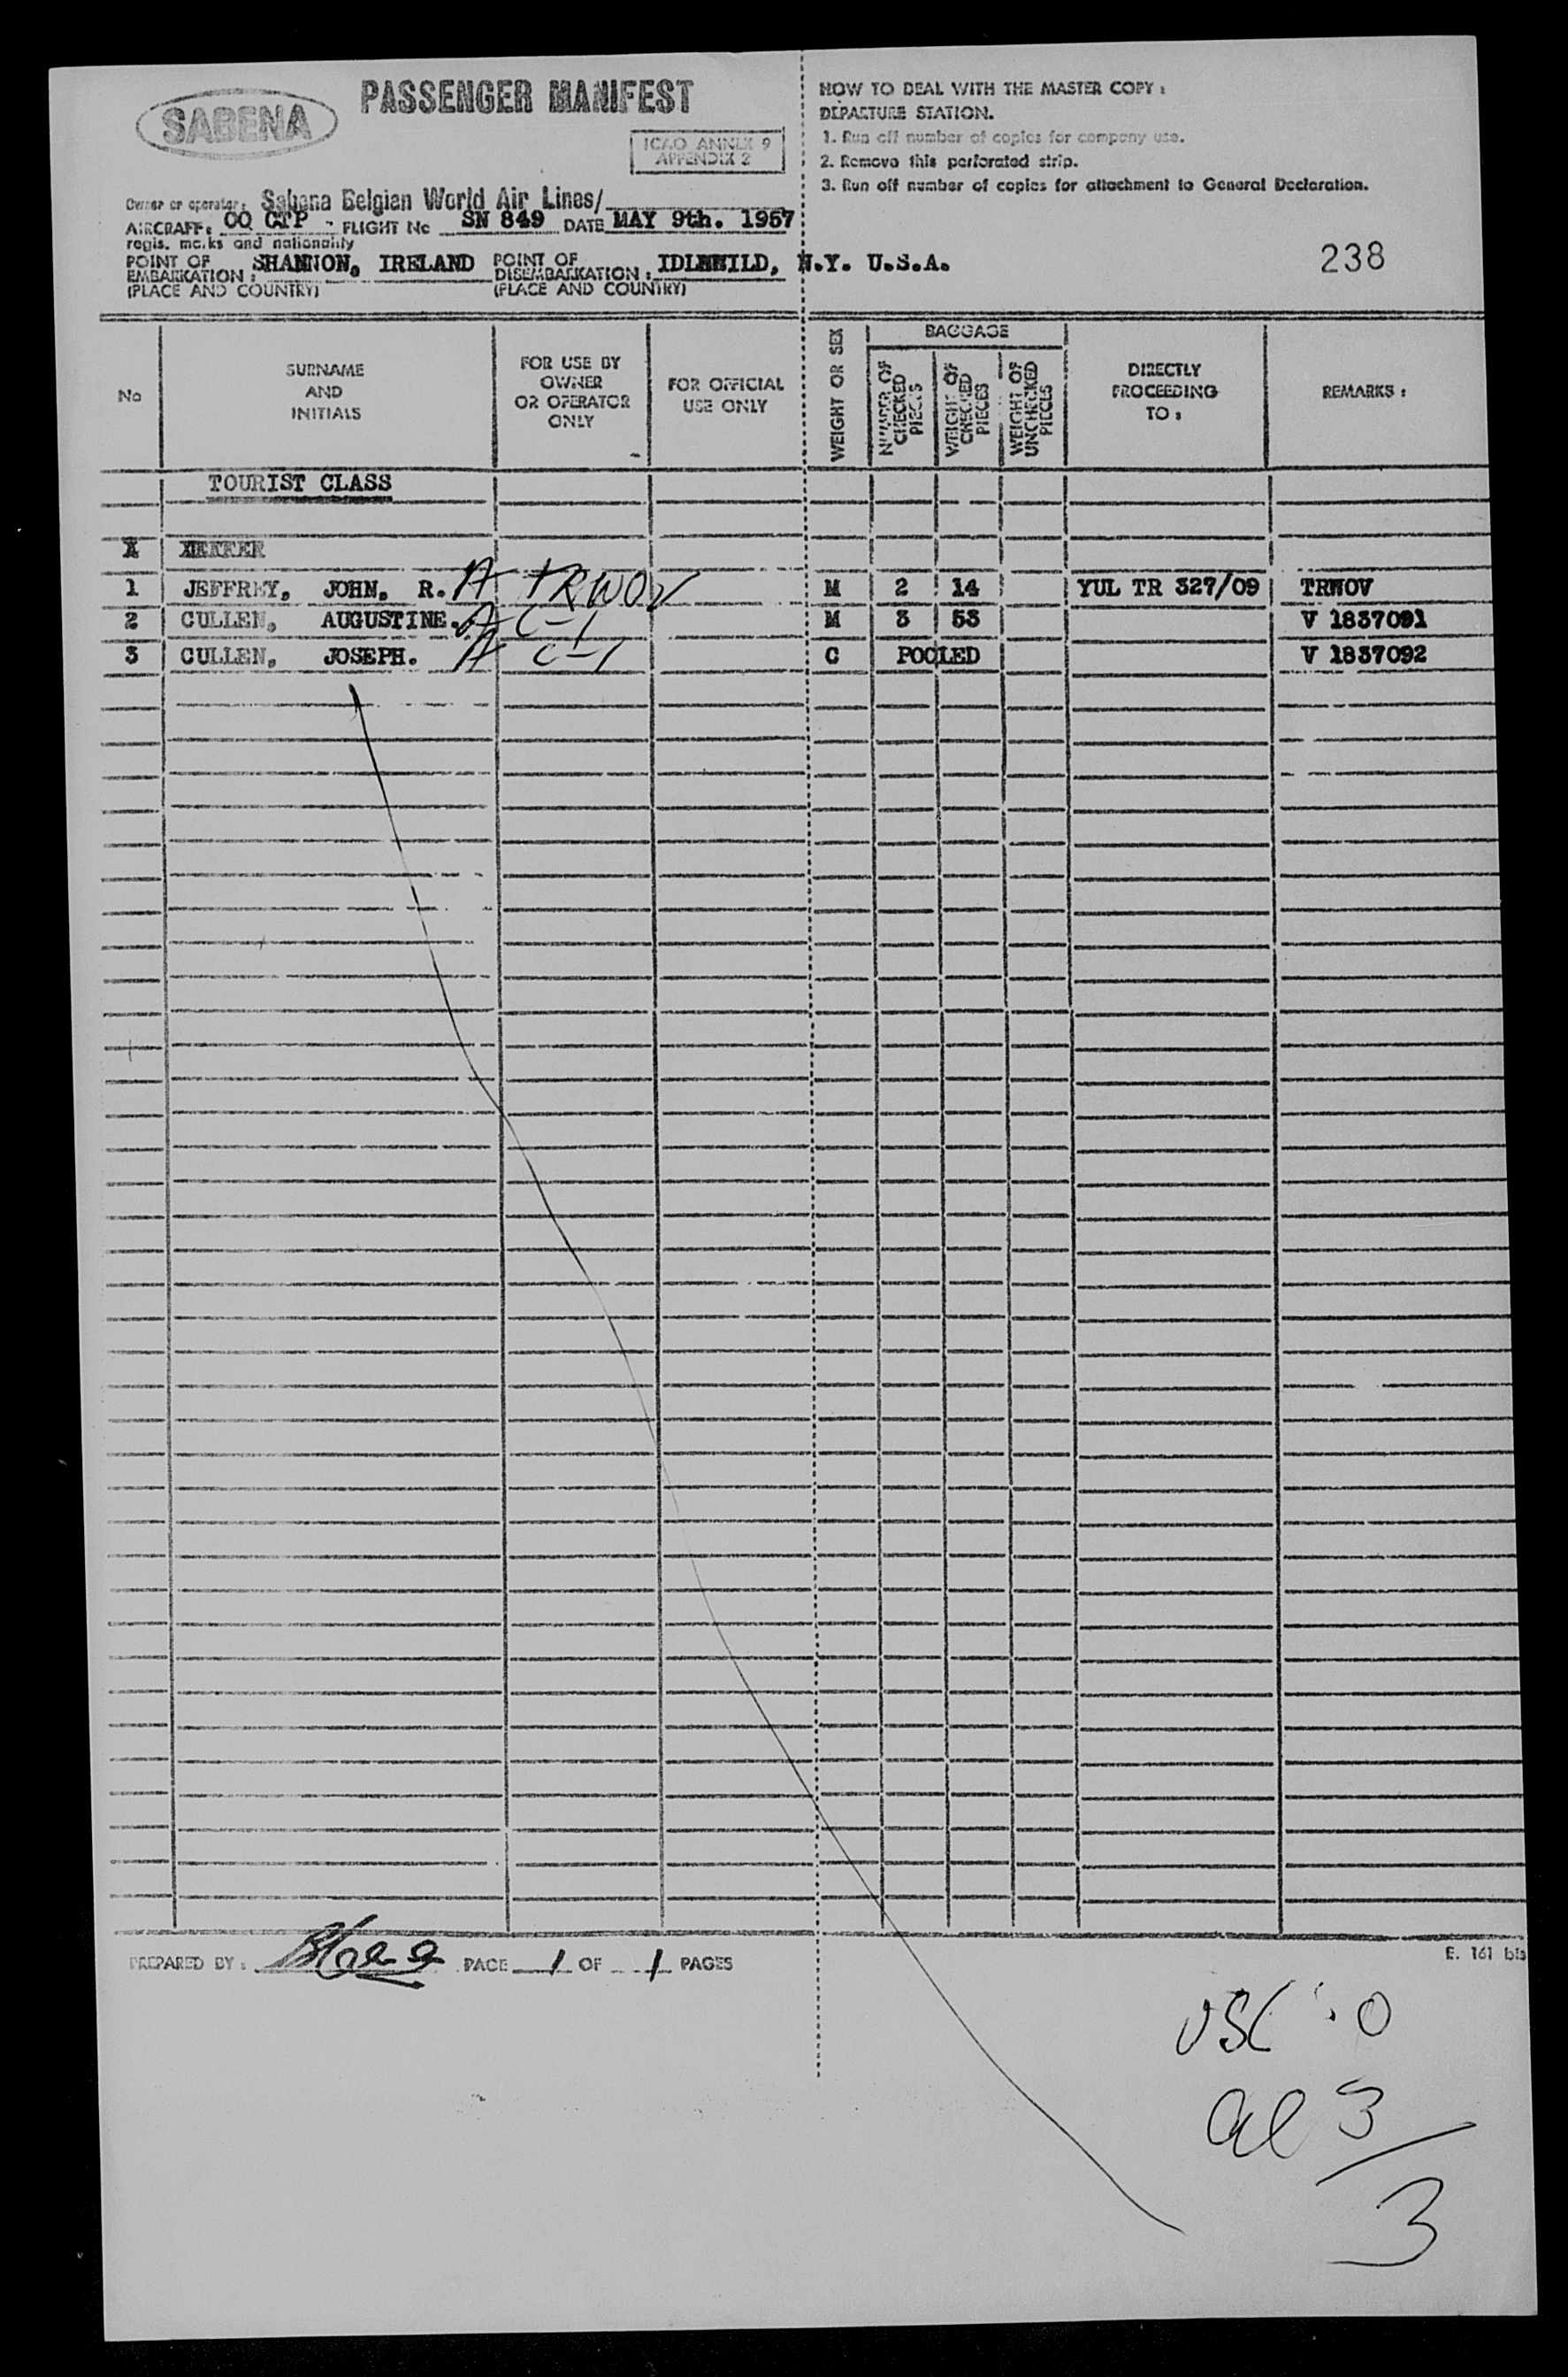 SABENA
PASSENGER MANIFEST
ICAO ANNEX 9
APPENDIX 2
HOW TO DEAL WITH THE MASTER COPY :
DEPARTURE STATION.
1. Run off number of copies for company use.
2. Remove this perforated strip.
3. Run off number of copies for attachment to General Declaration.
Owner or operator: Sabena Belgian World Air Lines/
AIRCRAFT: OO CTP FLIGHT No SN 849 DATE MAY 9th. 1957
regis. marks and nationality
POINT OF EMBARKATION : SHANNON, IRELAND POINT OF DISEMBARKATION : IDLEWILD, N.Y. U.S.A.
(PLACE AND COUNTRY) (PLACE AND COUNTRY)
238
No
SURNAME AND INITIALS
FOR USE BY OWNER OR OPERATOR ONLY
FOR OFFICIAL USE ONLY
WEIGHT OR SEX
BAGGAGE
NUMBER OF CHECKED PIECES
WEIGHT OF CHECKED PIECES
WEIGHT OF UNCHECKED PIECES
DIRECTLY PROCEEDING TO :
REMARKS :
TOURIST CLASS
1 JEFFREY, JOHN. R. A TRWOV M 2 14 YUL TR 327/09 TRWOV
2 CULLEN, AUGUSTINE. A C-1 M 3 53 V 1837091
3 CULLEN, JOSEPH. A C-1 C POOLED V 1837092
PREPARED BY : PAGE 1 OF 1 PAGES
E. 161 bis
USC 0
al 3
3